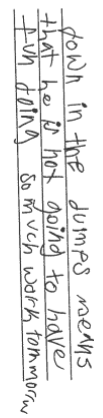 down in the dumps means
that he is not going to have
fun doing so much work tommorw